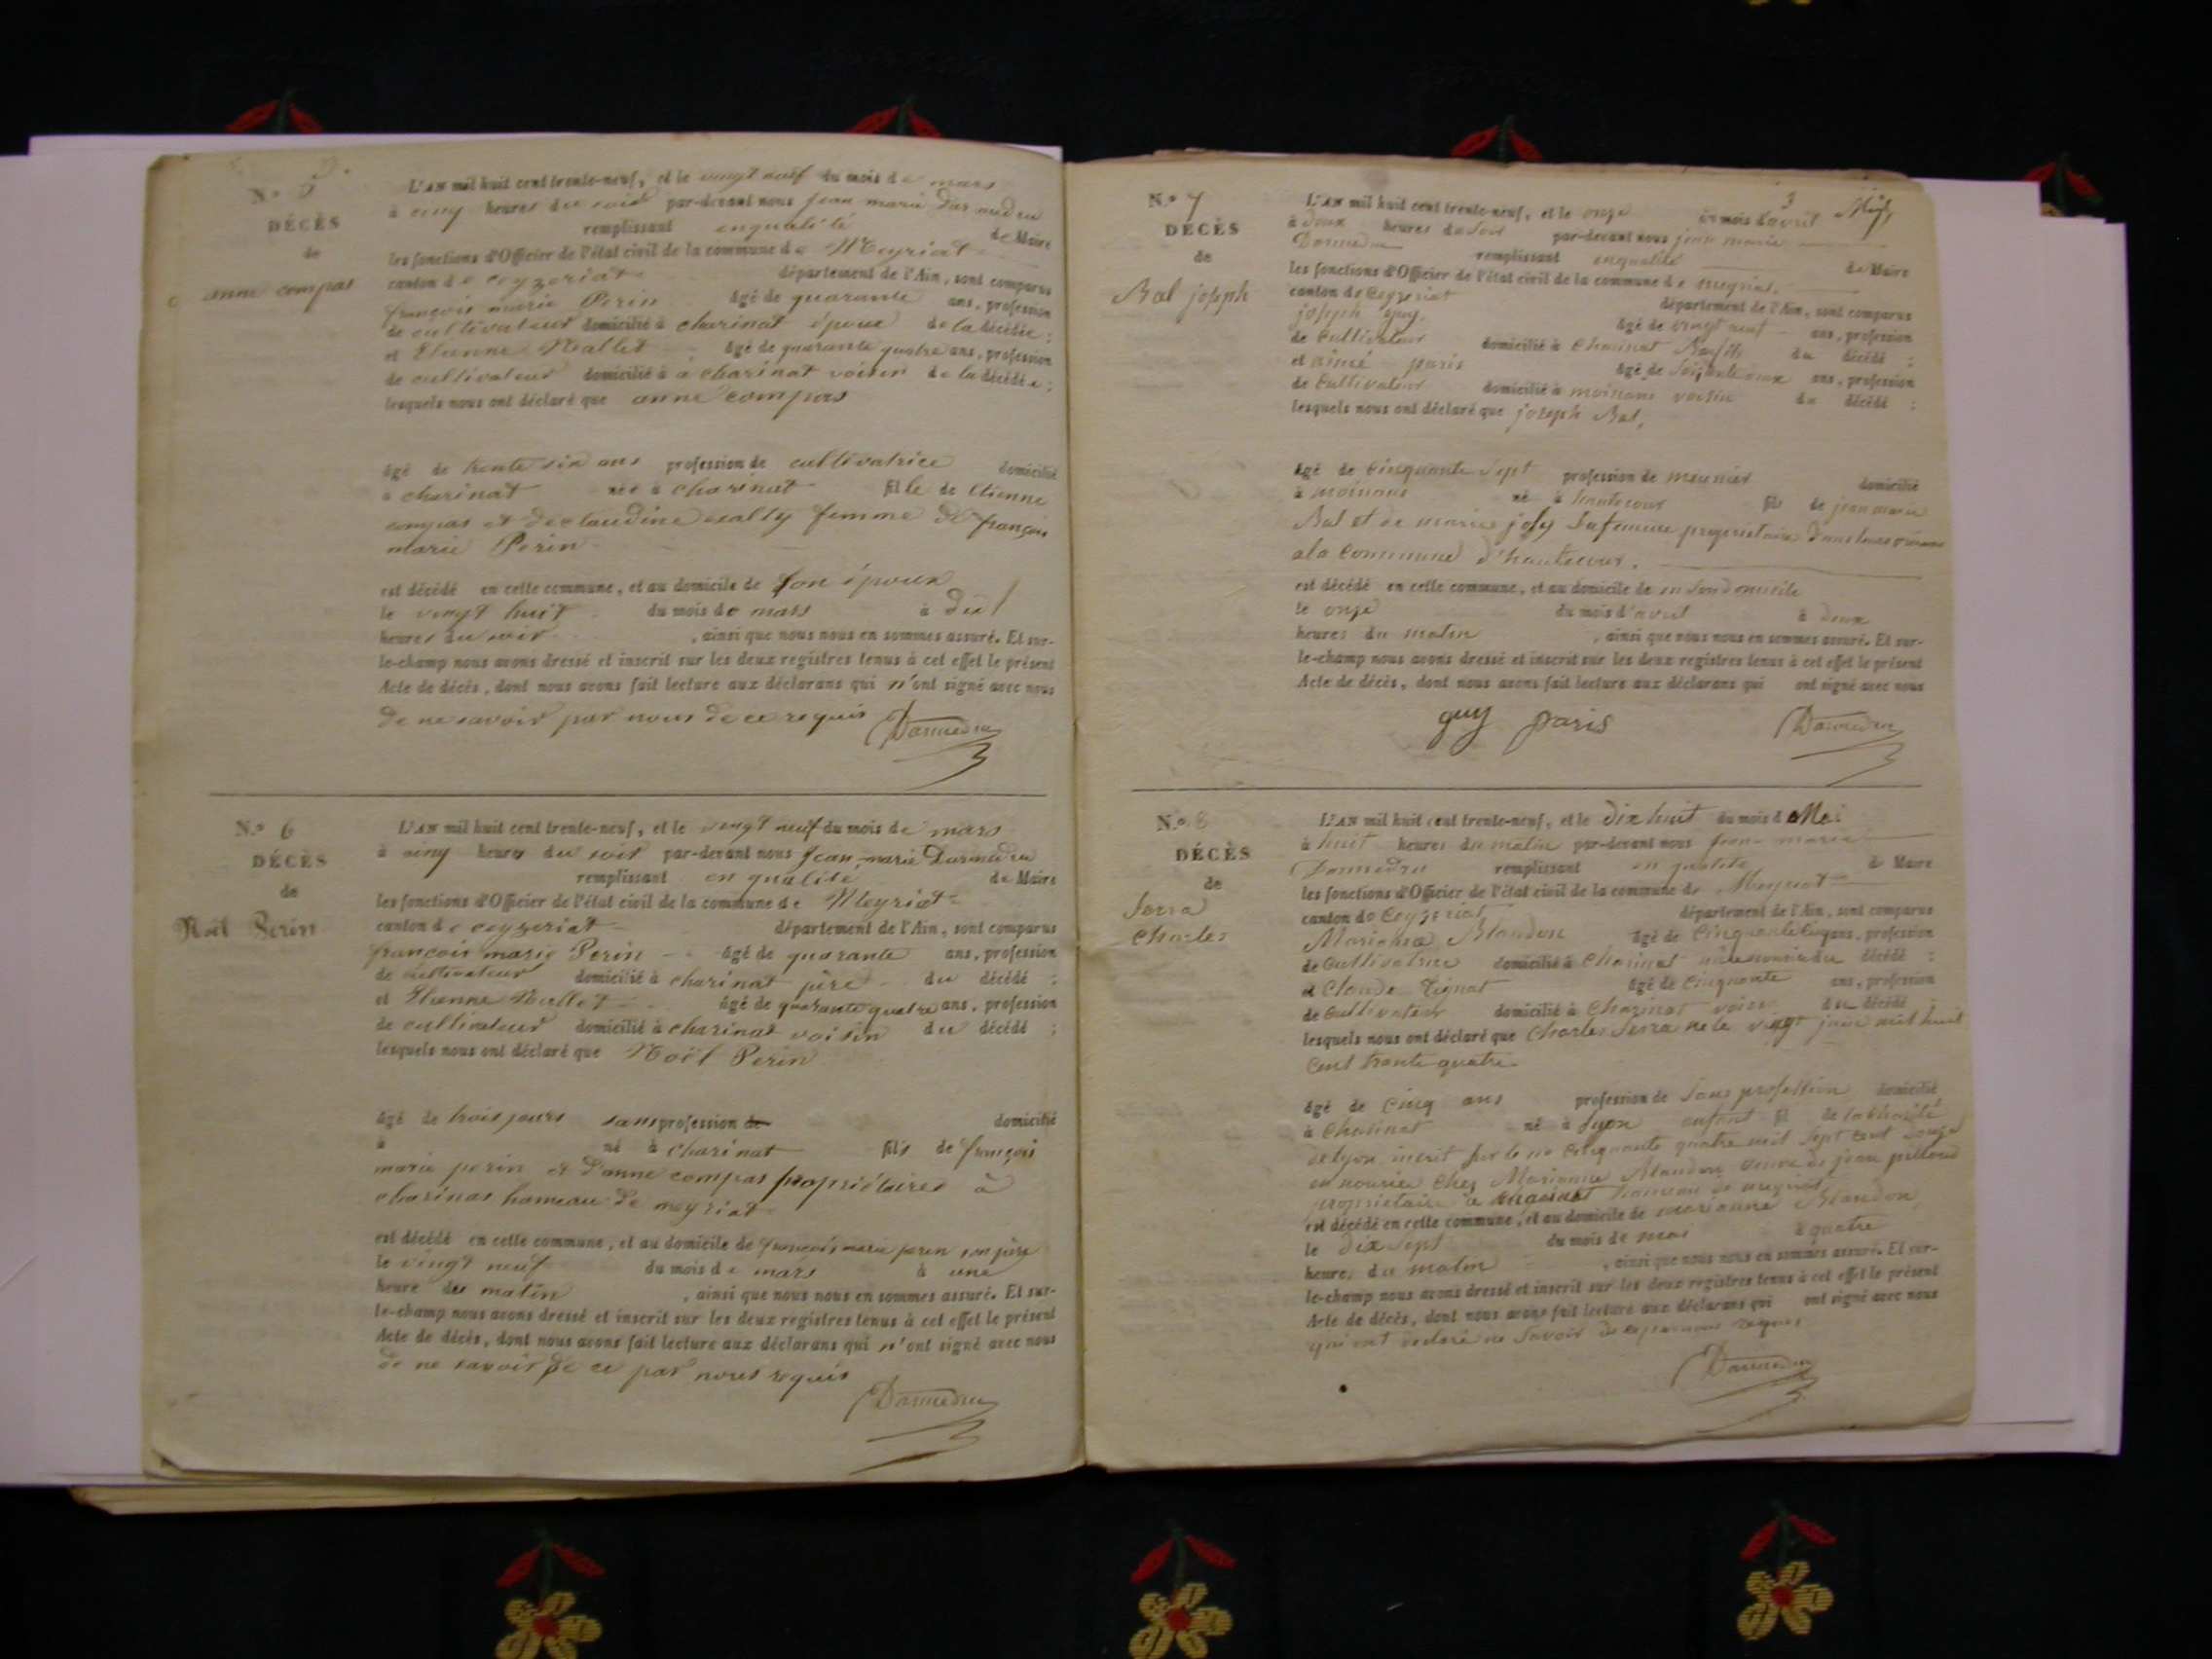 N.º 5
DÉCÈS
de
anne compas
L'AN mil huit cent trente-neuf, et le vingt neuf du mois de mars
à cinq heures du soir par-devant nous jean marie
remplissant enqualité de Maire
les fonctions d'Officier de l'état civil de la commune de Meyriat
canton de ceyzeriat département de l'Ain, sont comparus
françois marie Perin âgé de quarante ans, profession
de cultivateur domicilié à charinat époux de la décédée ;
et Etienne Nallet âgé de quarante quatre ans, profession
de cultivateur domicilié à a charinat voisin de la décédée ;
lesquels nous ont déclaré que anne compas
âgé de trente six ans profession de cultivatrice domicilié
à charinat née à charinat fille de Etienne
compas et de claudine femme de françois
marie Perin
est décédé en cette commune, et au domicile de son époux
le vingt huit du mois de mars à
heures du soir , ainsi que nous nous en sommes assuré. Et sur-
le-champ nous avons dressé et inscrit sur les deux registres tenus à cet effet le présent
Acte de décès, dont nous avons fait lecture aux déclarans qui n'ont signé avec nous
de ne savoir par nous de ce requis Darmedru
N.º 6
DÉCÈS
de
Noël Perin
L'AN mil huit cent trente-neuf, et le vingt neuf du mois de mars
à cinq heures du soir par-devant nous Jean-marie Darmedru
remplissant en qualité de Maire
les fonctions d'Officier de l'état civil de la commune de Meyriat
canton de ceyzeriat département de l'Ain, sont comparus
françois marie Perin âgé de quarante ans, profession
de cultivateur domicilié à charinat père du décédé ;
et Etienne Nallet âgé de quarante quatre ans, profession
de cultivateur domicilié à charinat voisin du décédé ;
lesquels nous ont déclaré que Noël Perin
âgé de trois jours sans profession de domicilié
à né à charinat fils de françois
marie perin et d'anne compas propriétaires à
charinat hameau de meyriat
est décédé en cette commune, et au domicile de françois marie perin son père
le vingt neuf du mois de mars à une
heure du matin , ainsi que nous nous en sommes assuré. Et sur-
le-champ nous avons dressé et inscrit sur les deux registres tenus à cet effet le présent
Acte de décès, dont nous avons fait lecture aux déclarans qui n'ont signé avec nous
de ne savoir de ce par nous requis
Darmedru
3
N.º 7
DÉCÈS
de
Bal joseph
L'AN mil huit cent trente-neuf, et le onze du mois d'avril
à deux heures du soir par-devant nous jean marie
Darmedru remplissant enqualité de Maire
les fonctions d'Officier de l'état civil de la commune de meyriat
canton de Ceyzeriat département de l'Ain, sont comparus
joseph guy âgé de vingt neuf ans, profession
de Cultivateur domicilié à Charinat du décédé ;
et aimé paris âgé de ans, profession
de Cultivateur domicilié à voisin du décédé ;
lesquels nous ont déclaré que joseph Bal,
âgé de Cinquante Sept profession de meunier domicilié
à né à hautecour fils de jean marie
Bal et de marie joly Sa femme propriétaire
a la Commune d'hautecour.
est décédé en cette commune, et au domicile de
le onze du mois d'avril à deux
heures du matin , ainsi que nous nous en sommes assuré. Et sur-
le-champ nous avons dressé et inscrit sur les deux registres tenus à cet effet le présent
Acte de décès, dont nous avons fait lecture aux déclarans qui ont signé avec nous
guy paris Darmedru
N.º 8
DÉCÈS
de
Serra
Charles
L'AN mil huit cent trente-neuf, et le dix huit du mois d Mai
à huit heures du matin par-devant nous jean marie
Darmedru remplissant en qualité de Maire
les fonctions d'Officier de l'état civil de la commune de Meyriat
canton de Ceyzeriat département de l'Ain, sont comparus
Marianne Blandon âgé de Cinquante Cinq ans, profession
de Cultivatrice domicilié à Charinat du décédé ;
et Claude Tignat âgé de Cinquante ans, profession
de Cultivateur domicilié à Charinat voisin du décédé ;
lesquels nous ont déclaré que Charles Serra né le vingt mil huit
Cent trente quatre
âgé de Cinq ans profession de Sans profession domicilié
à Charinat né à Lyon enfant fil de la charité
de Lyon inscrit sur le no Cinquante quatre mil Sept Cent
en chez Marianne Blandon veuve de jean
propriétaire a hameau de meyriat
est décédé en cette commune, et au domicile de marianne Blandon
le dix Sept du mois de mai à quatre
heures du matin , ainsi que nous nous en sommes assuré. Et sur-
le-champ nous avons dressé et inscrit sur les deux registres tenus à cet effet le présent
Acte de décès, dont nous avons fait lecture aux déclarans qui ont signé avec nous
qui ont déclaré ne Savoir de ce par nous requis
Darmedru